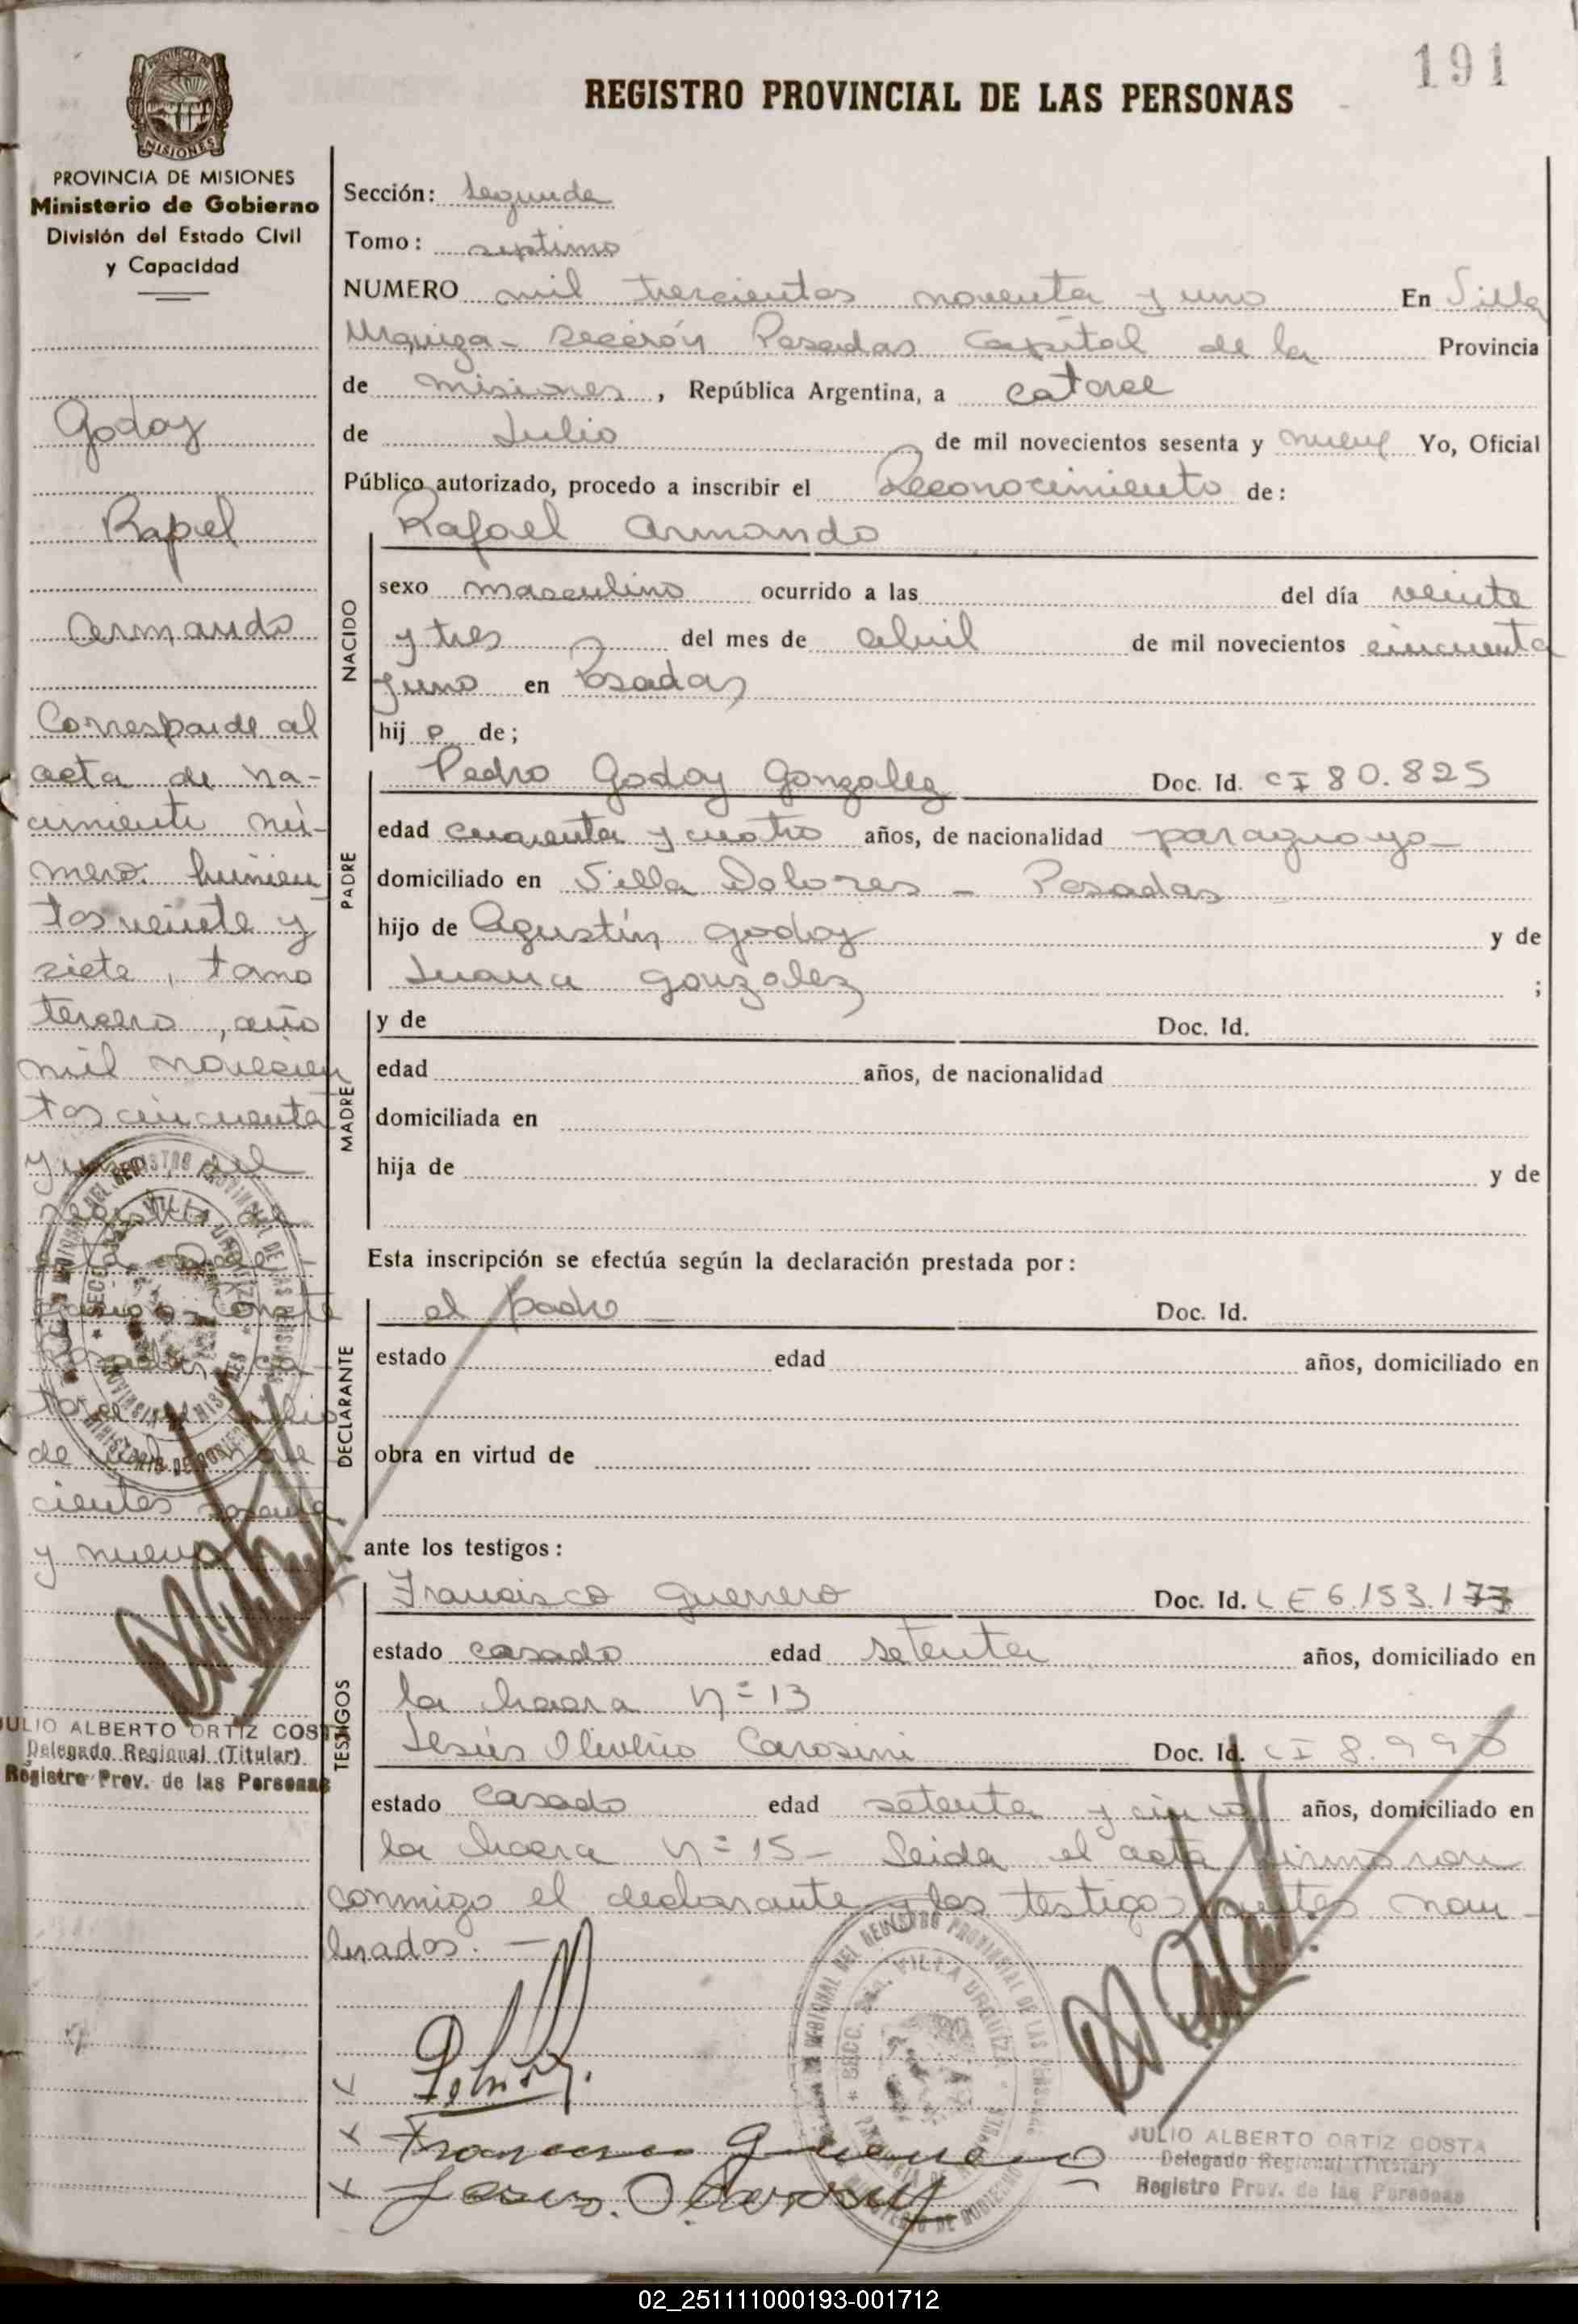 191
REGISTRO PROVINCIAL DE LAS PERSONAS
PROVINCIA DE MISIONES
MISIONES
PROVINCIA DE MISIONES
Ministerio de Gobierno
División del Estado Civil
y Capacidad
Godoy
Rapel
Armando
Corresponde al
acta de na-
cimiento nú-
mero:
tos veinte y
siete, tomo
tercero, año
mil novecien
tos cincuenta
y uno, del
registro de
Posadas, ca-
torce de Julio
de mil nove
cientos sesenta
y nueve
JULIO ALBERTO ORTIZ COSTA
Delegado Regional (Titular)
Registro Prov. de las Personas
Sección: Segunda
Tomo: septimo
NUMERO mil trescientos noventa y uno En Villa
Urquiza - Sección Posadas Capital de la Provincia
de Misiones, República Argentina, a catorce
de Julio de mil novecientos sesenta y nueve Yo, Oficial
Público autorizado, procedo a inscribir el Reconocimiento de:
NACIDO
Rafael Armando
sexo masculino ocurrido a las del día veinte
y tres del mes de abril de mil novecientos cincuenta
y uno en Posadas
hij o de;
PADRE
Pedro Godoy Gonzalez Doc. Id. CI 80.825
edad cuarenta y cuatro años, de nacionalidad paraguayo
domiciliado en Villa Dolores - Posadas
hijo de Agustín Godoy y de
Juana Gonzalez ;
MADRE
y de Doc. Id.
edad años, de nacionalidad
domiciliada en
hija de y de
Esta inscripción se efectúa según la declaración prestada por:
DECLARANTE
el padre Doc. Id.
estado edad años, domiciliado en
obra en virtud de
ante los testigos:
TESTIGOS
Francisco Guerrero Doc. Id. LE 6.153.177
estado casado edad setenta años, domiciliado en
la chacra nº 13
Jesús Oliverio Carosini Doc. Id. CI 8.990
estado casado edad setenta y cinco años, domiciliado en
la chacra nº 15 - Leida el acta firmaron
conmigo el declarante y los testigos antes nom-
brados. -
Francisco Guerrero
Jesus O. Carosini
JULIO ALBERTO ORTIZ COSTA
Delegado Regional (Titular)
Registro Prov. de las Personas
02_251111000193-001712